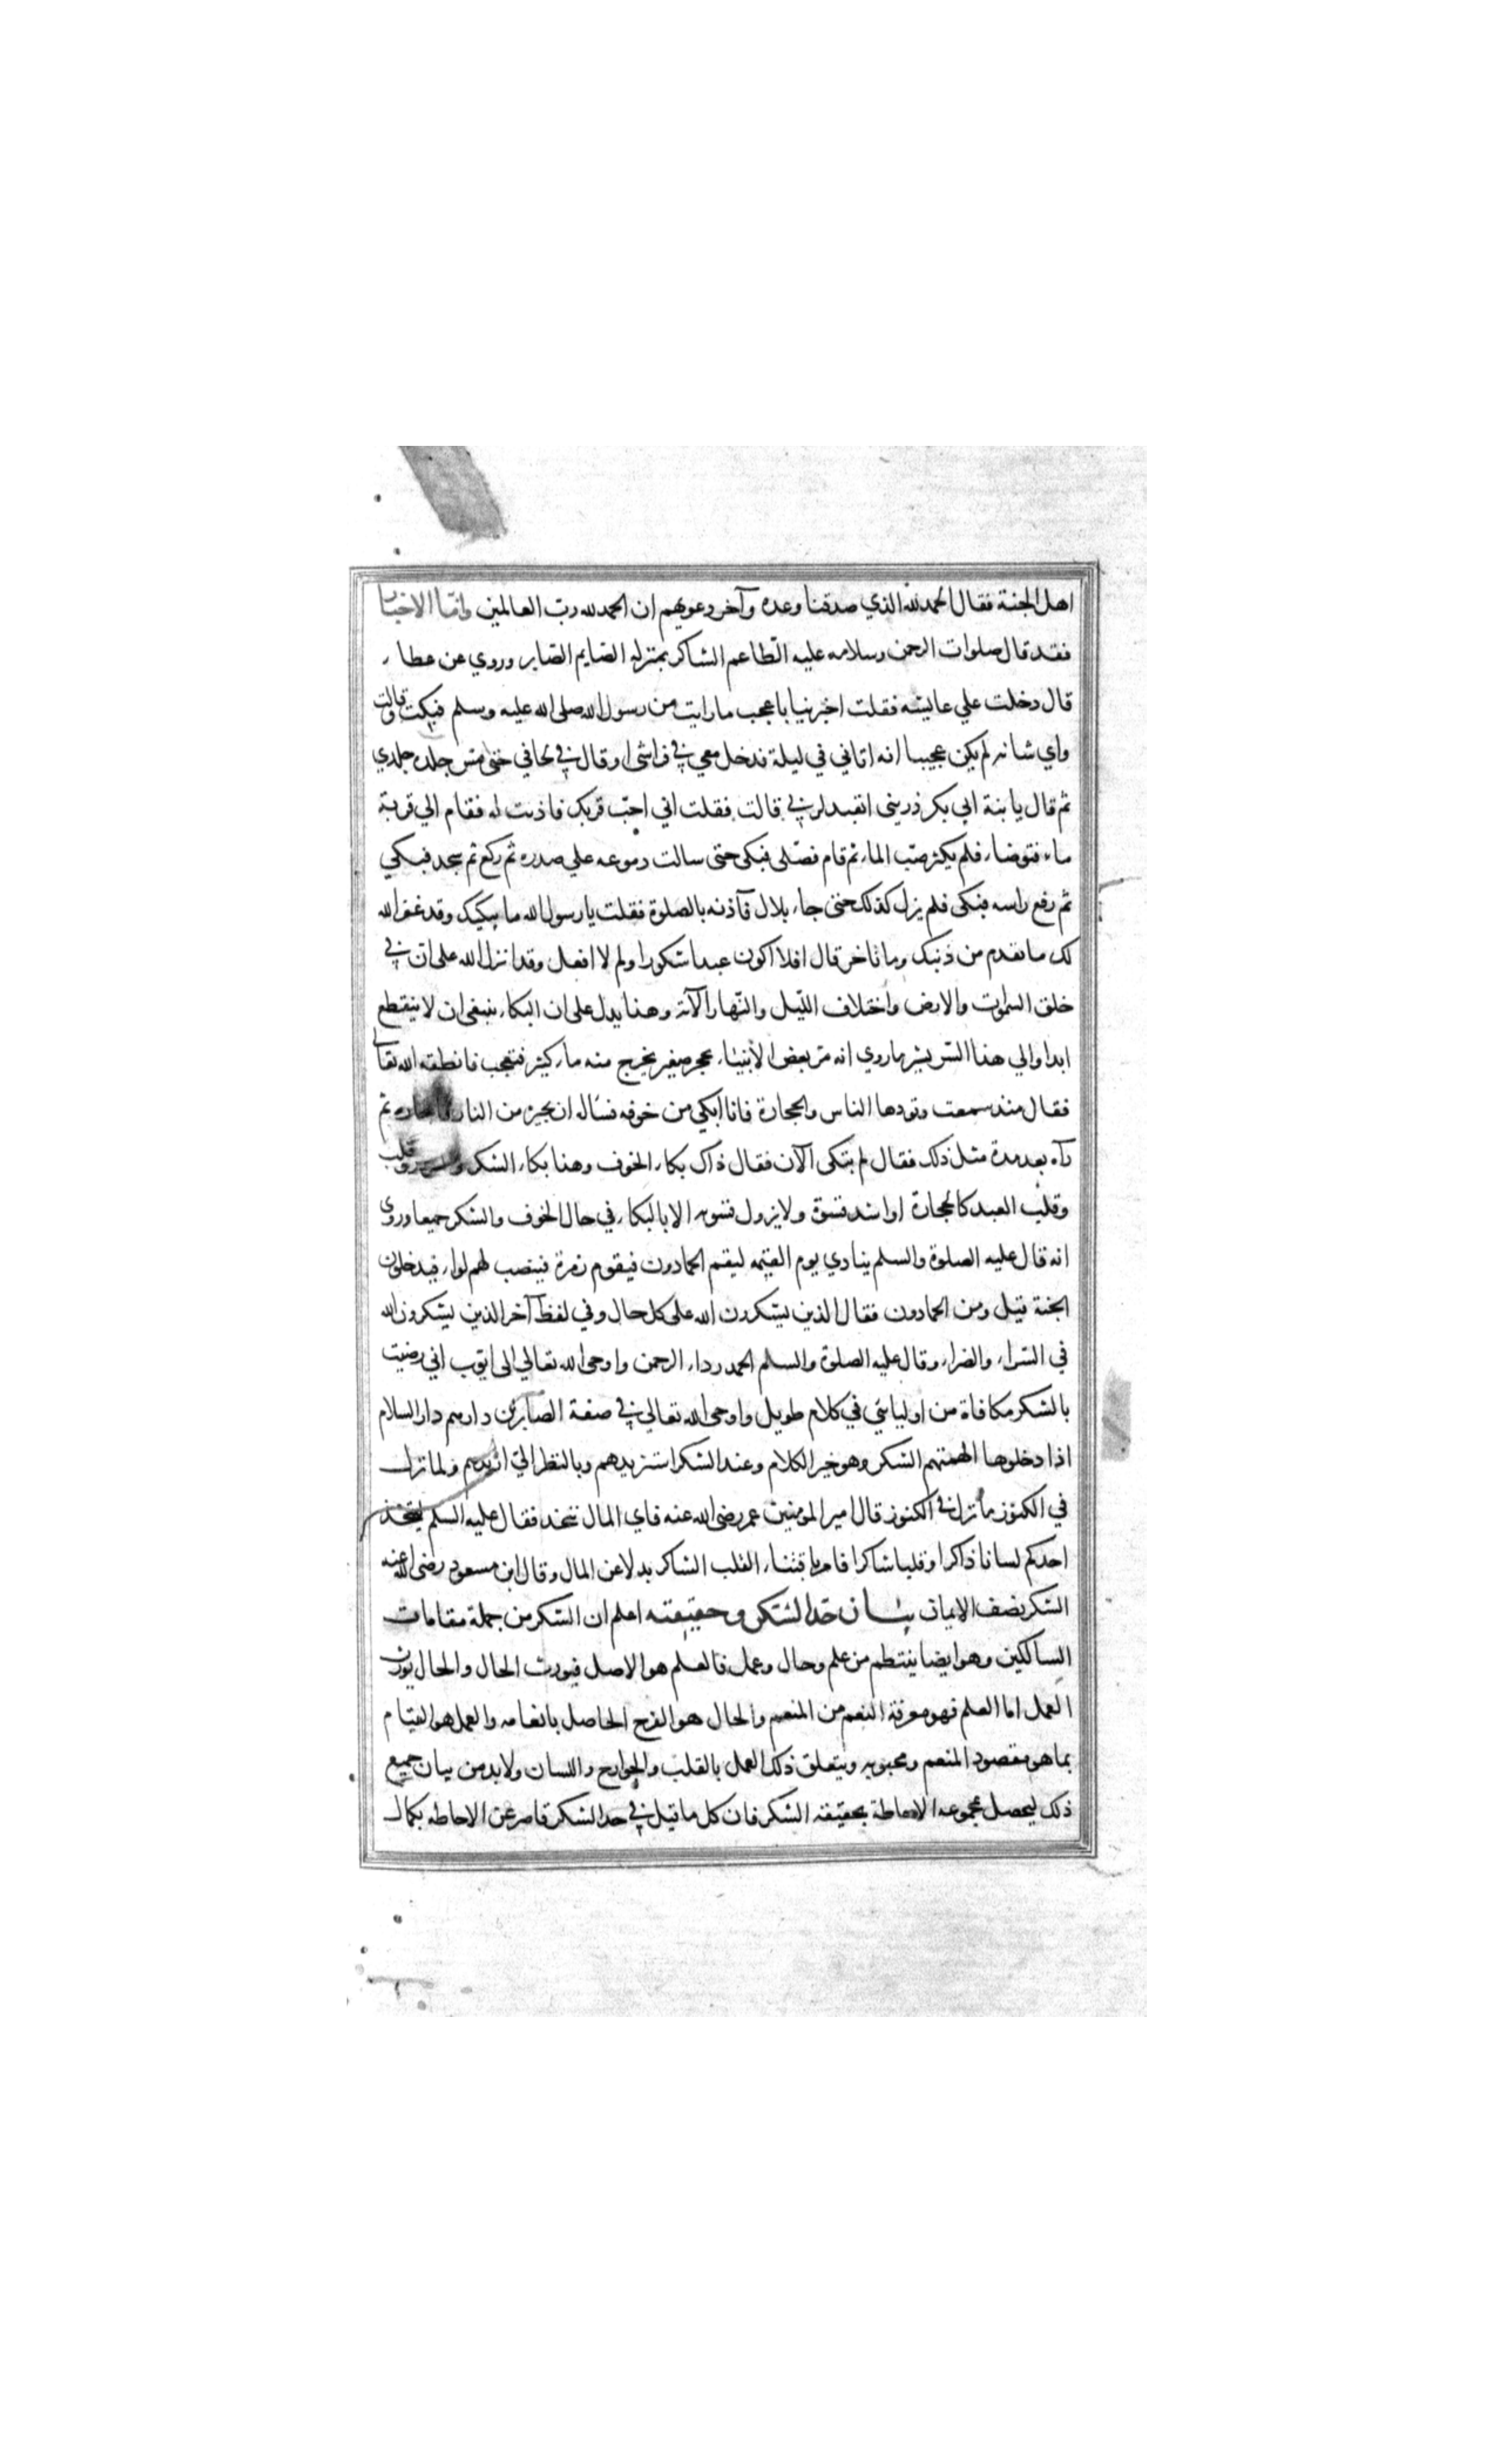 اهل الجنة فقال الحمد لله الذي صدقنا وعده وآخر دعويهم ان الحمد لله رب العالمين واما الاخبار
فقد قال صلوات الرحمن وسلامه عليه الطاعم الشاكر بمنزله الصايم الصابر وروي عن عطاء
قال دخلت علي عايشه فقلت اخبرنيا باعجب ما رايت من رسول الله صلى الله عليه وسلم فبكت وقالت
واي شانه لم يكن عجيبا انه اتاني في ليلة فدخل معي في فراشي او قال في لحافي حتى مس جلده جلدي
ثم قال يا بنة ابي بكر ذريني اتعبد لربي قالت فقلت اني احب قربك فاذنت له فقام الي قربة
ماء فتوضاء فلم يكثر صب الماء ثم قام فصلى فبكى حتى سالت دموعه علي صدره ثم ركع ثم سجد فبكي
ثم رفع راسه فبكى فلم يزل كذلك حتى جاء بلال فآذنه بالصلوة فقلت يا رسول الله ما يبكيك وقد غفر الله
لك ما تقدم من ذنبك وما تاخر قال افلا اكون عبدا شكورا ولم لا افعل وقد انزل الله على ان في
خلق السموات والارض واختلاف الليل والنهار الآية وهذا يدل على ان البكاء ينبغي ان لا ينقطع
ابدا والي هذا السر يشير ما روي انه مر بعض الانبياء بحجر صغير يخرج منه ماء كثير فتعجب فانطقه الله تعالى
فقال منذ سمعت وقودها الناس والحجارة فانا ابكي من خوفه فساله ان يجيره من النار فاجاره ثم
رآه بعد مدة مثل ذلك فقال لم تبكى الآن فقال ذاك بكاء الخوف وهذا بكاء الشكر والسرور وقلب
وقلب العبد كالحجارة او اشد قسوة ولا يزول قسوته الا بالبكاء في حال الخوف والشكر جميعا وروى
انه قال عليه الصلوة والسلم ينادي يوم القيمه ليقم الحمادون فيقوم زمرة فينصب لهم لواء فيدخلون
الجنة قيل ومن الحمادون فقال الذين يشكرون الله على كل حال وفي لفظ آخر الذين يشكرون الله
في السراء والضراء وقال عليه الصلوة والسلم الحمد رداء الرحمن واوحى الله تعالي الى ايوب اني رضيت
بالشكر مكافاة من اوليائي في كلام طويل واوحى الله تعالي في صفة الصابرين دارهم دار السلام
اذا دخلوها الهمتهم الشكر وهو خير الكلام وعند الشكر استزيدهم وبالنظر الي ازيدهم ولما نزل
في الكنوز ما نزل في الكنوز قال امير المومنين عمر رضى الله عنه فاي المال نتخذ فقال عليه السلم ليتخذ
احدكم لسانا ذاكرا وقلبا شاكرا فامر باقتناء القلب الشاكر بدلا عن المال وقال ابن مسعود رضى الله عنه
الشكر نصف الايمان بيان حد الشكر وحقيقته اعلم ان الشكر من جملة مقامات
السالكين وهو ايضا ينتظم من علم وحال وعمل فالعلم هو الاصل فيورث الحال والحال يورث
العمل اما العلم فهو معرفة النعم من المنعم والحال هو الفرح الحاصل بانعامه والعمل هو القيام
بما هو مقصود المنعم ومحبوبه ويتعلق ذلك العمل بالقلب والجوارح واللسان ولابد من بيان جميع
ذلك ليحصل بمجموعه الاحاطة بحقيقة الشكر فان كل ما قيل في حد الشكر قاصر عن الاحاطه بكمال